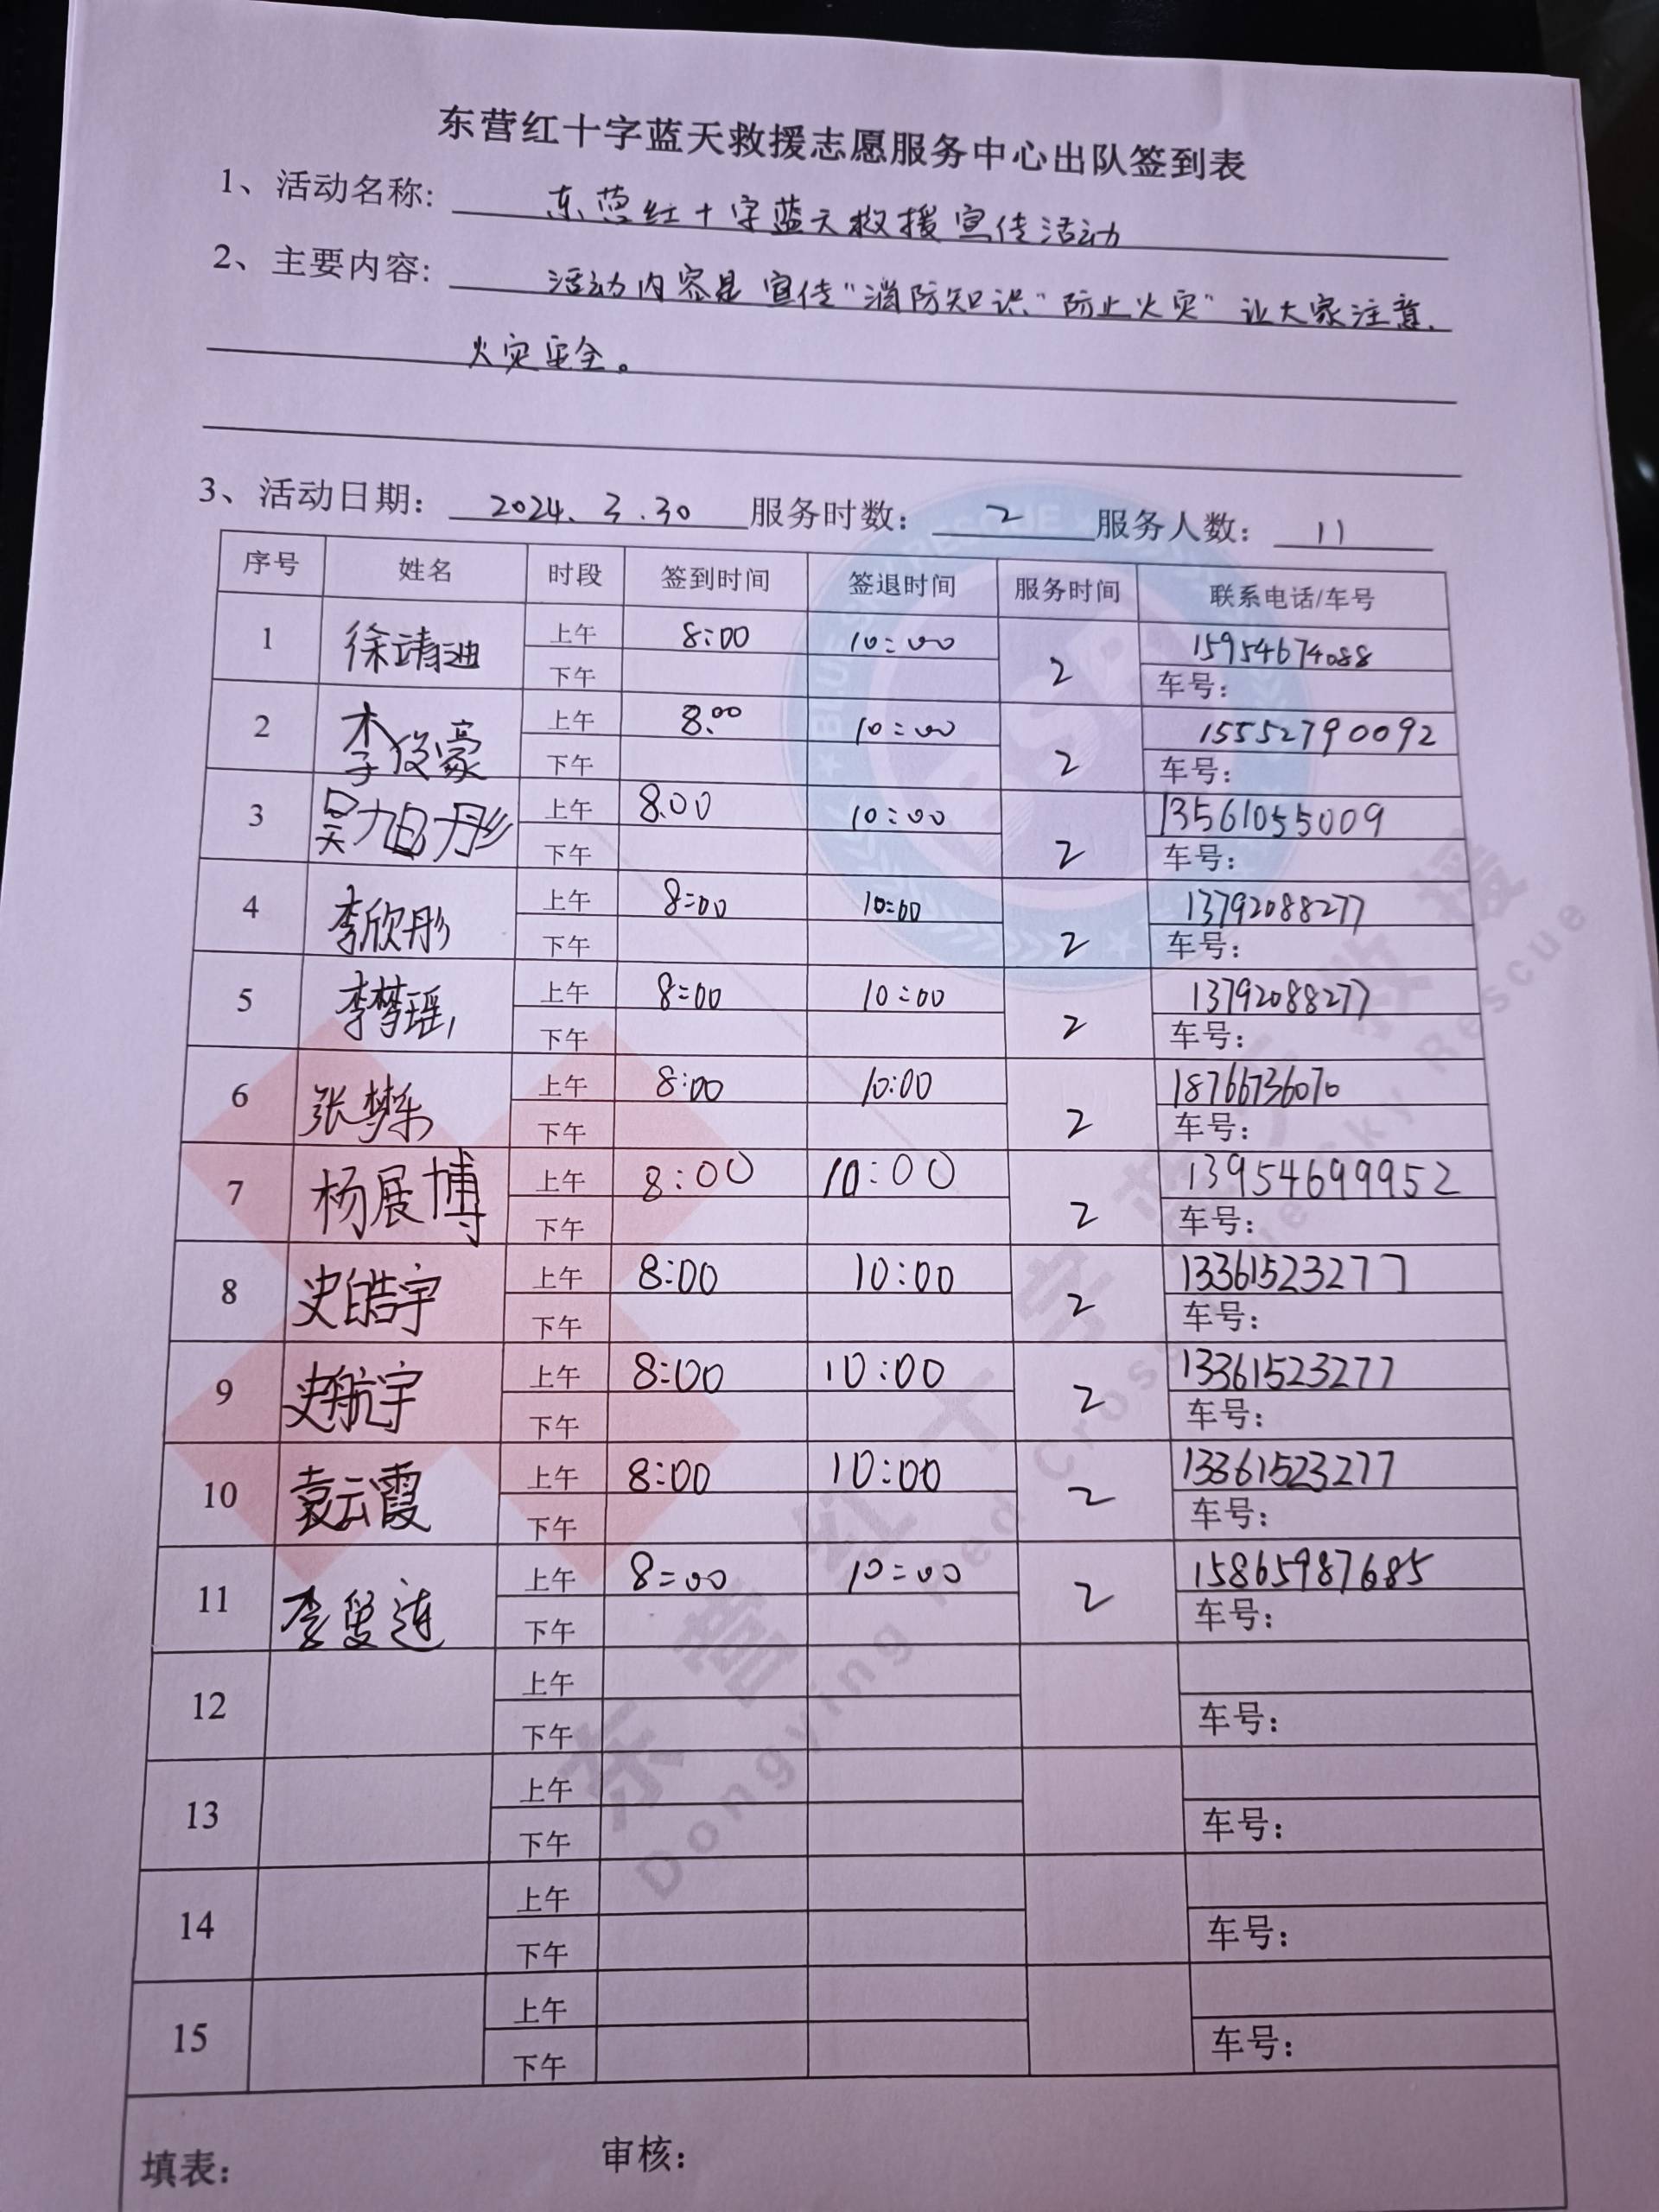 东营红十字蓝天救援志愿服务中心出队签到表
1、活动名称: 东营红十字蓝天救援宣传活动
2、主要内容: 活动内容是宣传“消防知识“防止火灾”让大家注意
火灾安全。
3、活动日期: 2024.3.30 服务时数: 2 服务人数: 11
序号 姓名 时段 签到时间 签退时间 服务时间 联系电话/车号
1 徐靖迪 上午 8:00 10:00 2 15954674088
下午 车号:
2 李俊豪 上午 8:00 10:00 2 15552790092
下午 车号:
3 吴旭彤 上午 8:00 10:00 2 13561055009
下午 车号:
4 李欣彤 上午 8:00 10:00 2 13792088277
下午 车号:
5 李梦瑶 上午 8:00 10:00 2 13792088277
下午 车号:
6 张梦乐 上午 8:00 10:00 2 18766736070
下午 车号:
7 杨展博 上午 8:00 10:00 2 13954699952
下午 车号:
8 史皓宇 上午 8:00 10:00 2 13361523277
下午 车号:
9 史航宇 上午 8:00 10:00 2 13361523277
下午 车号:
10 袁云霞 上午 8:00 10:00 2 13361523277
下午 车号:
11 李 连 上午 8:00 10:00 2 15865987685
下午 车号:
12 上午
下午 车号:
13 上午
下午 车号:
14 上午
下午 车号:
15 上午
下午 车号:
填表: 审核:
BLUE SKY RESCUE
BSR
东营红十字蓝天救援
Dongying Red Cross Blue Sky Rescue